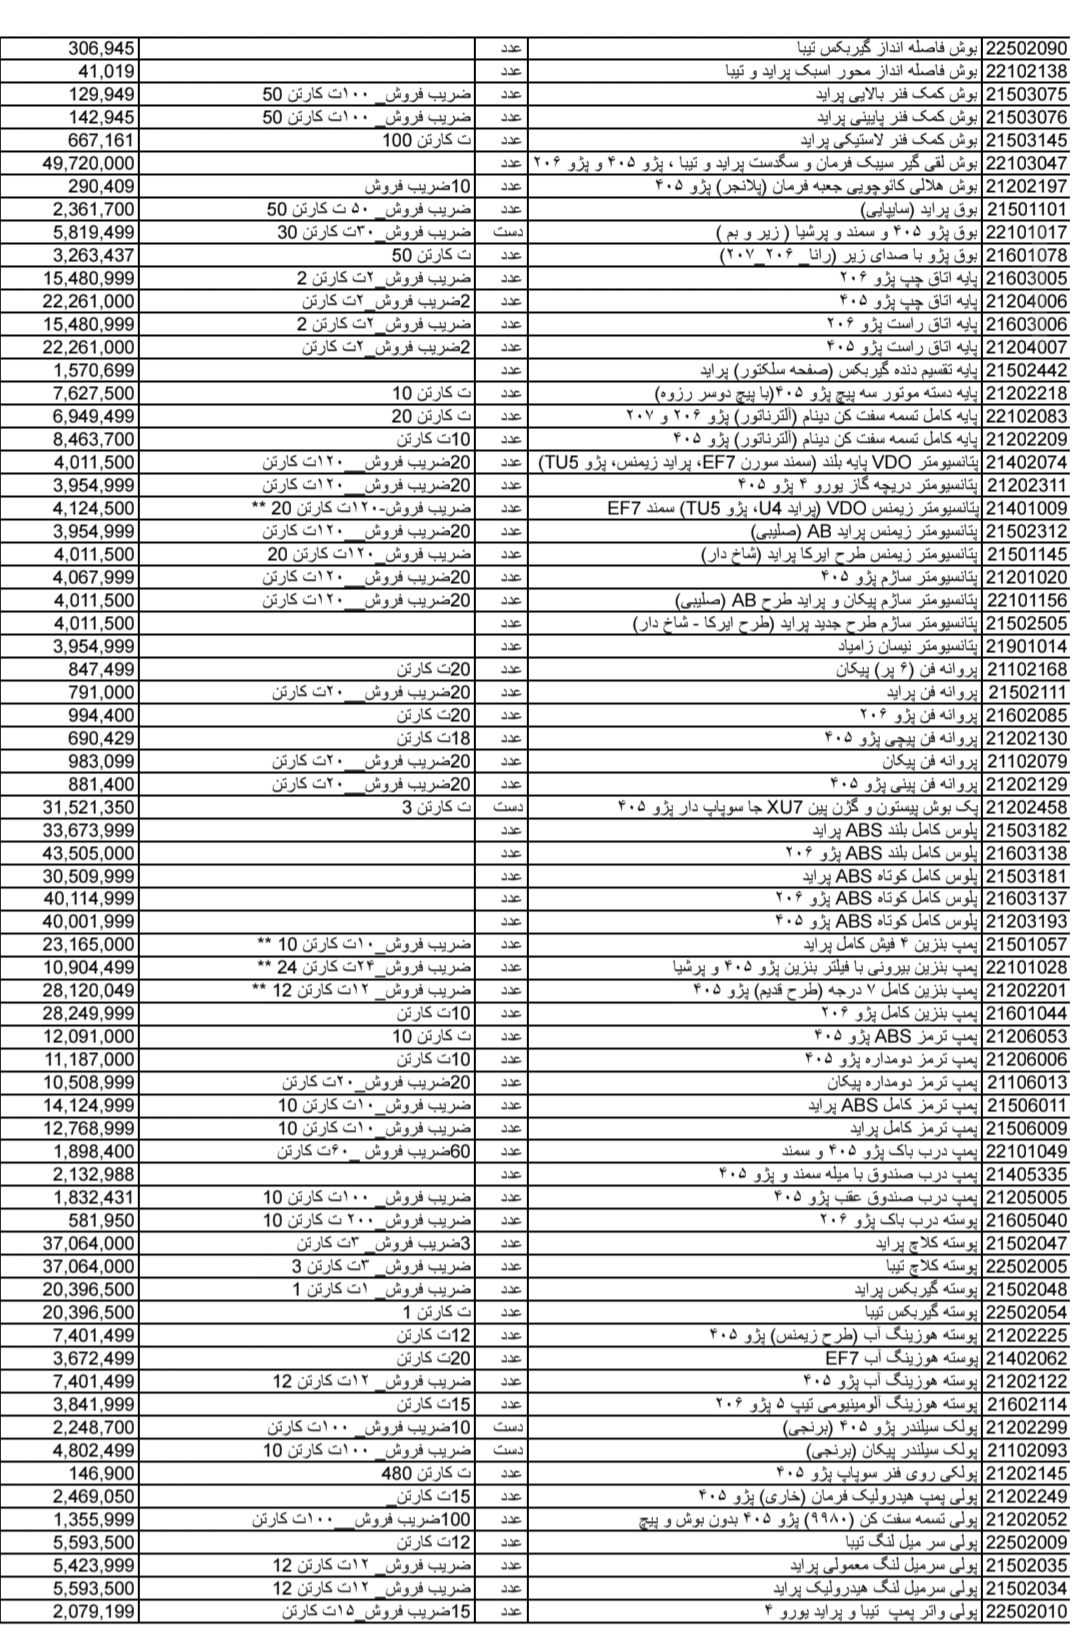 22502090 بوش فاصله انداز گیربکس تیبا عدد 306,945
22102138 بوش فاصله انداز محور اسبک پراید و تیبا عدد 41,019
21503075 بوش کمک فنر بالایی پراید عدد ضریب فروش_ ۱۰۰ت کارتن 50 129,949
21503076 بوش کمک فنر پایینی پراید عدد ضریب فروش_ ۱۰۰ت کارتن 50 142,945
21503145 بوش کمک فنر لاستیکی پراید عدد ت کارتن 100 667,161
22103047 بوش لقی گیر سیبک فرمان و سگدست پراید و تیبا ، پژو ۴۰۵ و پژو ۲۰۶ عدد 49,720,000
21202197 بوش هلالی کائوچویی جعبه فرمان (پلانجر) پژو ۴۰۵ عدد 10ضریب فروش 290,409
21501101 بوق پراید (سایپایی) عدد ضریب فروش_ ۵۰ ت کارتن 50 2,361,700
22101017 بوق پژو ۴۰۵ و سمند و پرشیا ( زیر و بم ) دست ضریب فروش_ ۳۰ت کارتن 30 5,819,499
21601078 بوق پژو با صدای زیر (رانا_ ۲۰۶_۲۰۷) عدد ت کارتن 50 3,263,437
21603005 پایه اتاق چپ پژو ۲۰۶ عدد ضریب فروش_۲ت کارتن 2 15,480,999
21204006 پایه اتاق چپ پژو ۴۰۵ عدد 2ضریب فروش_۲ت کارتن 22,261,000
21603006 پایه اتاق راست پژو ۲۰۶ عدد ضریب فروش_۲ت کارتن 2 15,480,999
21204007 پایه اتاق راست پژو ۴۰۵ عدد 2ضریب فروش_۲ت کارتن 22,261,000
21502442 پایه تقسیم دنده گیربکس (صفحه سلکتور) پراید عدد 1,570,699
21202218 پایه دسته موتور سه پیچ پژو ۴۰۵(با پیچ دوسر رزوه) عدد ت کارتن 10 7,627,500
22102083 پایه کامل تسمه سفت کن دینام (آلترناتور) پژو ۲۰۶ و ۲۰۷ عدد ت کارتن 20 6,949,499
21202209 پایه کامل تسمه سفت کن دینام (آلترناتور) پژو ۴۰۵ عدد 10ت کارتن 8,463,700
21402074 پتانسیومتر VDO پایه بلند (سمند سورن EF7، پراید زیمنس، پژو TU5) عدد 20ضریب فروش__۱۲۰ت کارتن 4,011,500
21202311 پتانسیومتر دریچه گاز یورو ۴ پژو ۴۰۵ عدد 20ضریب فروش__۱۲۰ت کارتن 3,954,999
21401009 پتانسیومتر زیمنس VDO (پراید U4، پژو TU5) سمند EF7 عدد ضریب فروش-۱۲۰ت کارتن 20 ** 4,124,500
21502312 پتانسیومتر زیمنس پراید AB (صلیبی) عدد 20ضریب فروش__۱۲۰ت کارتن 3,954,999
21501145 پتانسیومتر زیمنس طرح ایرکا پراید (شاخ دار) عدد ضریب فروش_۱۲۰ت کارتن 20 4,011,500
21201020 پتانسیومتر ساژم پژو ۴۰۵ عدد 20ضریب فروش__۱۲۰ت کارتن 4,067,999
22101156 پتانسیومتر ساژم پیکان و پراید طرح AB (صلیبی) عدد 20ضریب فروش__۱۲۰ت کارتن 4,011,500
21502505 پتانسیومتر ساژم طرح جدید پراید (طرح ایرکا - شاخ دار) عدد 4,011,500
21901014 پتانسیومتر نیسان زامیاد عدد 3,954,999
21102168 پروانه فن (۶ پر) پیکان عدد 20ت کارتن 847,499
21502111 پروانه فن پراید عدد 20ضریب فروش__۲۰ت کارتن 791,000
21602085 پروانه فن پژو ۲۰۶ عدد 20ت کارتن 994,400
21202130 پروانه فن پیچی پژو ۴۰۵ عدد 18ت کارتن 690,429
21102079 پروانه فن پیکان عدد 20ضریب فروش__۲۰ت کارتن 983,099
21202129 پروانه فن پینی پژو ۴۰۵ عدد 20ضریب فروش__۲۰ت کارتن 881,400
21202458 پک بوش پیستون و گژن پین XU7 جا سوپاپ دار پژو ۴۰۵ دست ت کارتن 3 31,521,350
21503182 پلوس کامل بلند ABS پراید عدد 33,673,999
21603138 پلوس کامل بلند ABS پژو ۲۰۶ عدد 43,505,000
21503181 پلوس کامل کوتاه ABS پراید عدد 30,509,999
21603137 پلوس کامل کوتاه ABS پژو ۲۰۶ عدد 40,114,999
21203193 پلوس کامل کوتاه ABS پژو ۴۰۵ عدد 40,001,999
21501057 پمپ بنزین ۴ فیش کامل پراید عدد ضریب فروش_۱۰ت کارتن 10 ** 23,165,000
22101028 پمپ بنزین بیرونی با فیلتر بنزین پژو ۴۰۵ و پرشیا عدد ضریب فروش_۲۴ت کارتن 24 ** 10,904,499
21202201 پمپ بنزین کامل ۷ درجه (طرح قدیم) پژو ۴۰۵ عدد ضریب فروش_ ۱۲ت کارتن 12 ** 28,120,049
21601044 پمپ بنزین کامل پژو ۲۰۶ عدد 10ت کارتن 28,249,999
21206053 پمپ ترمز ABS پژو ۴۰۵ عدد ت کارتن 10 12,091,000
21206006 پمپ ترمز دومداره پژو ۴۰۵ عدد 10ت کارتن 11,187,000
21106013 پمپ ترمز دومداره پیکان عدد 20ضریب فروش_۲۰ت کارتن 10,508,999
21506011 پمپ ترمز کامل ABS پراید عدد ضریب فروش_۱۰ت کارتن 10 14,124,999
21506009 پمپ ترمز کامل پراید عدد ضریب فروش_۱۰ت کارتن 10 12,768,999
22101049 پمپ درب باک پژو ۴۰۵ و سمند عدد 60ضریب فروش _۶۰ت کارتن 1,898,400
21405335 پمپ درب صندوق با میله سمند و پژو ۴۰۵ عدد 2,132,988
21205005 پمپ درب صندوق عقب پژو ۴۰۵ عدد ضریب فروش_ ۱۰۰ت کارتن 10 1,832,431
21605040 پوسته درب باک پژو ۲۰۶ عدد ضریب فروش_۲۰۰ ت کارتن 10 581,950
21502047 پوسته کلاچ پراید عدد 3ضریب فروش_ ۳ت کارتن 37,064,000
22502005 پوسته کلاچ تیبا عدد ضریب فروش_ ۳ت کارتن 3 37,064,000
21502048 پوسته گیربکس پراید عدد ضریب فروش_ ۱ت کارتن 1 20,396,500
22502054 پوسته گیربکس تیبا عدد ت کارتن 1 20,396,500
21202225 پوسته هوزینگ آب (طرح زیمنس) پژو ۴۰۵ عدد 12ت کارتن 7,401,499
21402062 پوسته هوزینگ آب EF7 عدد 20ت کارتن 3,672,499
21202122 پوسته هوزینگ آب پژو ۴۰۵ عدد ضریب فروش_ ۱۲ت کارتن 12 7,401,499
21602114 پوسته هوزینگ آلومینیومی تیپ ۵ پژو ۲۰۶ عدد 15ت کارتن 3,841,999
21202299 پولک سیلندر پژو ۴۰۵ (برنجی) دست 10ضریب فروش_ ۱۰۰ت کارتن 2,248,700
21102093 پولک سیلندر پیکان (برنجی) دست ضریب فروش_ ۱۰۰ت کارتن 10 4,802,499
21202145 پولکی روی فنر سوپاپ پژو ۴۰۵ عدد ت کارتن 480 146,900
21202249 پولی پمپ هیدرولیک فرمان (خاری) پژو ۴۰۵ عدد 15ت کارتن_ 2,469,050
21202052 پولی تسمه سفت کن (۹۹۸۰) پژو ۴۰۵ بدون بوش و پیچ عدد 100ضریب فروش__۱۰۰ت کارتن 1,355,999
22502009 پولی سر میل لنگ تیبا عدد 12ت کارتن 5,593,500
21502035 پولی سرمیل لنگ معمولی پراید عدد ضریب فروش_ ۱۲ت کارتن 12 5,423,999
21502034 پولی سرمیل لنگ هیدرولیک پراید عدد ضریب فروش_ ۱۲ت کارتن 12 5,593,500
22502010 پولی واتر پمپ تیبا و پراید یورو ۴ عدد 15ضریب فروش_۱۵ت کارتن 2,079,199